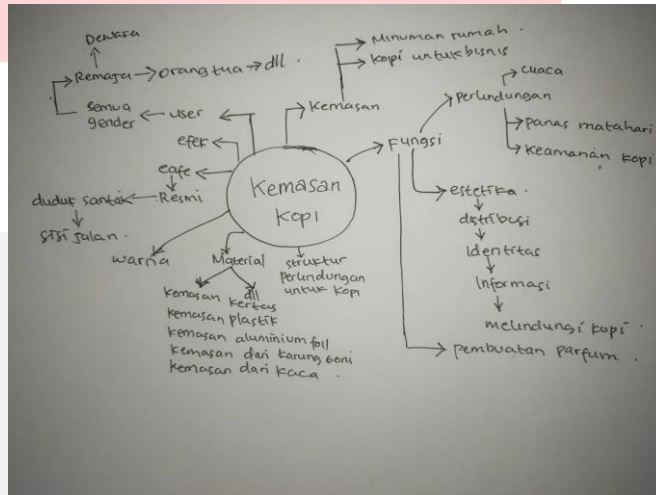 Dewasa
Remaja → orang tua → dll.
semua
gender
user
efek
cafe
Resmi
duduk santai
sisi jalan.
warna
Material
dll
kemasan kertas
kemasan plastik
kemasan aluminium foil
kemasan dari karung goni
kemasan dari kaca.
struktur
perlindungan
untuk kopi
Kemasan
kopi
Kemasan
Minuman rumah.
kopi untuk bisnis
Fungsi
perlindungan
cuaca
panas matahari
keamanan kopi
estetika.
distribusi
Identitas
Informasi
melindungi kopi.
pembuatan parfum.